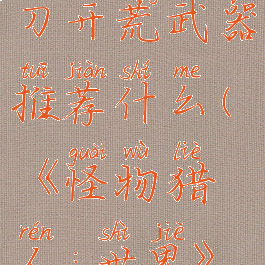 刀开荒武器
tuī jiàn shí me
推荐什么(
guài wù liè
《怪物猎
rén shì jiè
人：世界》